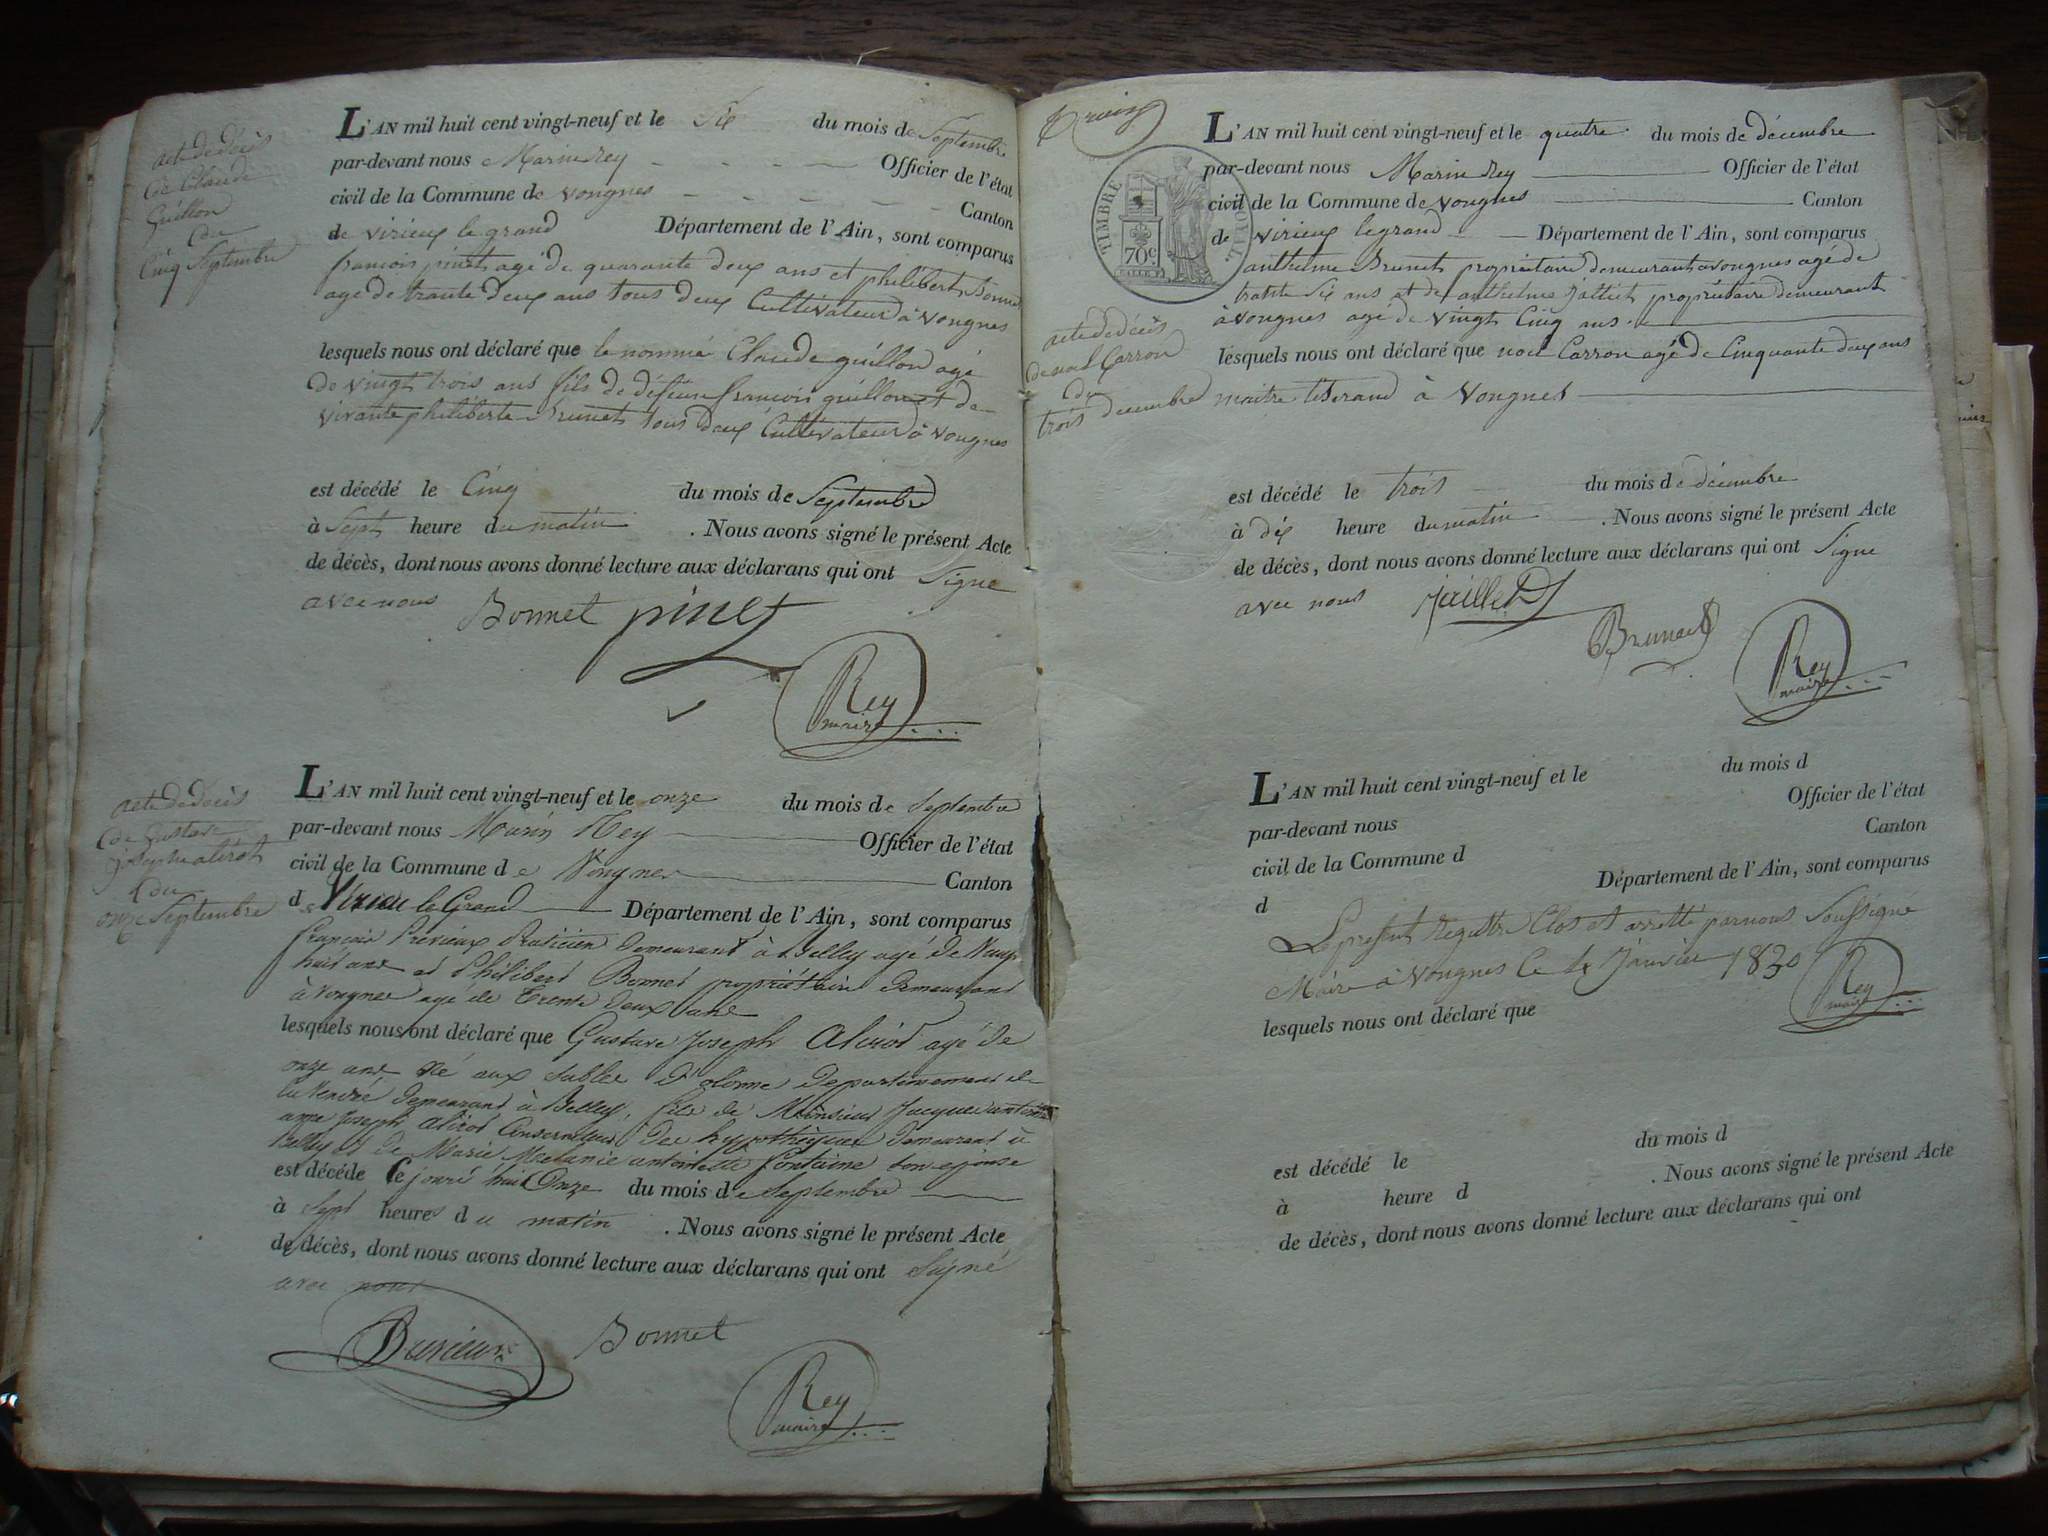 acte de décès
de Claude
Guillon
du
Cinq Septembre
L'AN mil huit cent vingt-neuf et le Six du mois de Septembre
par-devant nous Marin Rey Officier de l'état
civil de la Commune de Vongnes Canton
de virieux le grand Département de l'Ain, sont comparus
francois pinet agé de quarante deux ans et philibert Bonnet
agé de trante deux ans tous deux Cultivateur à Vongnes
lesquels nous ont déclaré que le nommé Claude guillon agé
de vingt trois ans fils de défeun francois guillon et de
vivante philiberte Brunet tous deux Cultivateur à Vongnes
est décédé le Cinq du mois de Septembre
à Sept heure du matin . Nous avons signé le présent Acte
de décès, dont nous avons donné lecture aux déclarans qui ont Signe
avec nous
Bonnet pinet
Rey
maire
acte de décès
de Gustave
joseph alirot
du
onze Septembre
L'AN mil huit cent vingt-neuf et le onze du mois de Septembre
par-devant nous Marin Rey Officier de l'état
civil de la Commune de Vongnes Canton
de Virieu le Grand Département de l'Ain, sont comparus
françois Praticien demeurant à Belley agé de Vingt
huit ans et Philibert Bonnet propriétaire demeurant
à Vongnes agé de Trente deux ans
lesquels nous ont déclaré que Gustave Joseph Alirot agé de
onze ans né aux Sables d'olonne département de
la Vendée demeurant à Belley, fils de Monsieur Jacques antoine
Joseph alirot Conservateur des hypothèques demeurant à
Belley et de Marie Melanie antoinette fontaine son epouse
est décédé Cejourd'hui Onze du mois de Septembre
à Sept heures du matin . Nous avons signé le présent Acte
de décès, dont nous avons donné lecture aux déclarans qui ont Signé
avec nous
Bonnet
Rey
maire
TIMBRE ROYAL
70c.
L'AN mil huit cent vingt-neuf et le quatre du mois de décembre
par-devant nous Marin Rey Officier de l'état
civil de la Commune de Vongnes Canton
de Virieux legrand Département de l'Ain, sont comparus
anthelme Brunet propriétaire demeurant a vongnes agé de
trante Six ans et de anthelme Jalliet propriétaire demeurant
à Vongnes agé de vingt Cinq ans
acte de décès
de noel Carron
du
trois decembre
lesquels nous ont déclaré que noel Carron agé de Cinquante deux ans
maitre tiserand à Vongnes
est décédé le trois du mois de décembre
à dix heure du matin . Nous avons signé le présent Acte
de décès, dont nous avons donné lecture aux déclarans qui ont Signe
avec nous Jaillet
Brunet
Rey
maire
L'AN mil huit cent vingt-neuf et le du mois d
par-devant nous Officier de l'état
civil de la Commune d Canton
d Département de l'Ain, sont comparus
Le present registre Clos et arretté par nous Soussigné
Maire à Vongnes Ce Janvier 1830
Rey
maire
lesquels nous ont déclaré que
est décédé le du mois d
à heure d . Nous avons signé le présent Acte
de décès, dont nous avons donné lecture aux déclarans qui ont